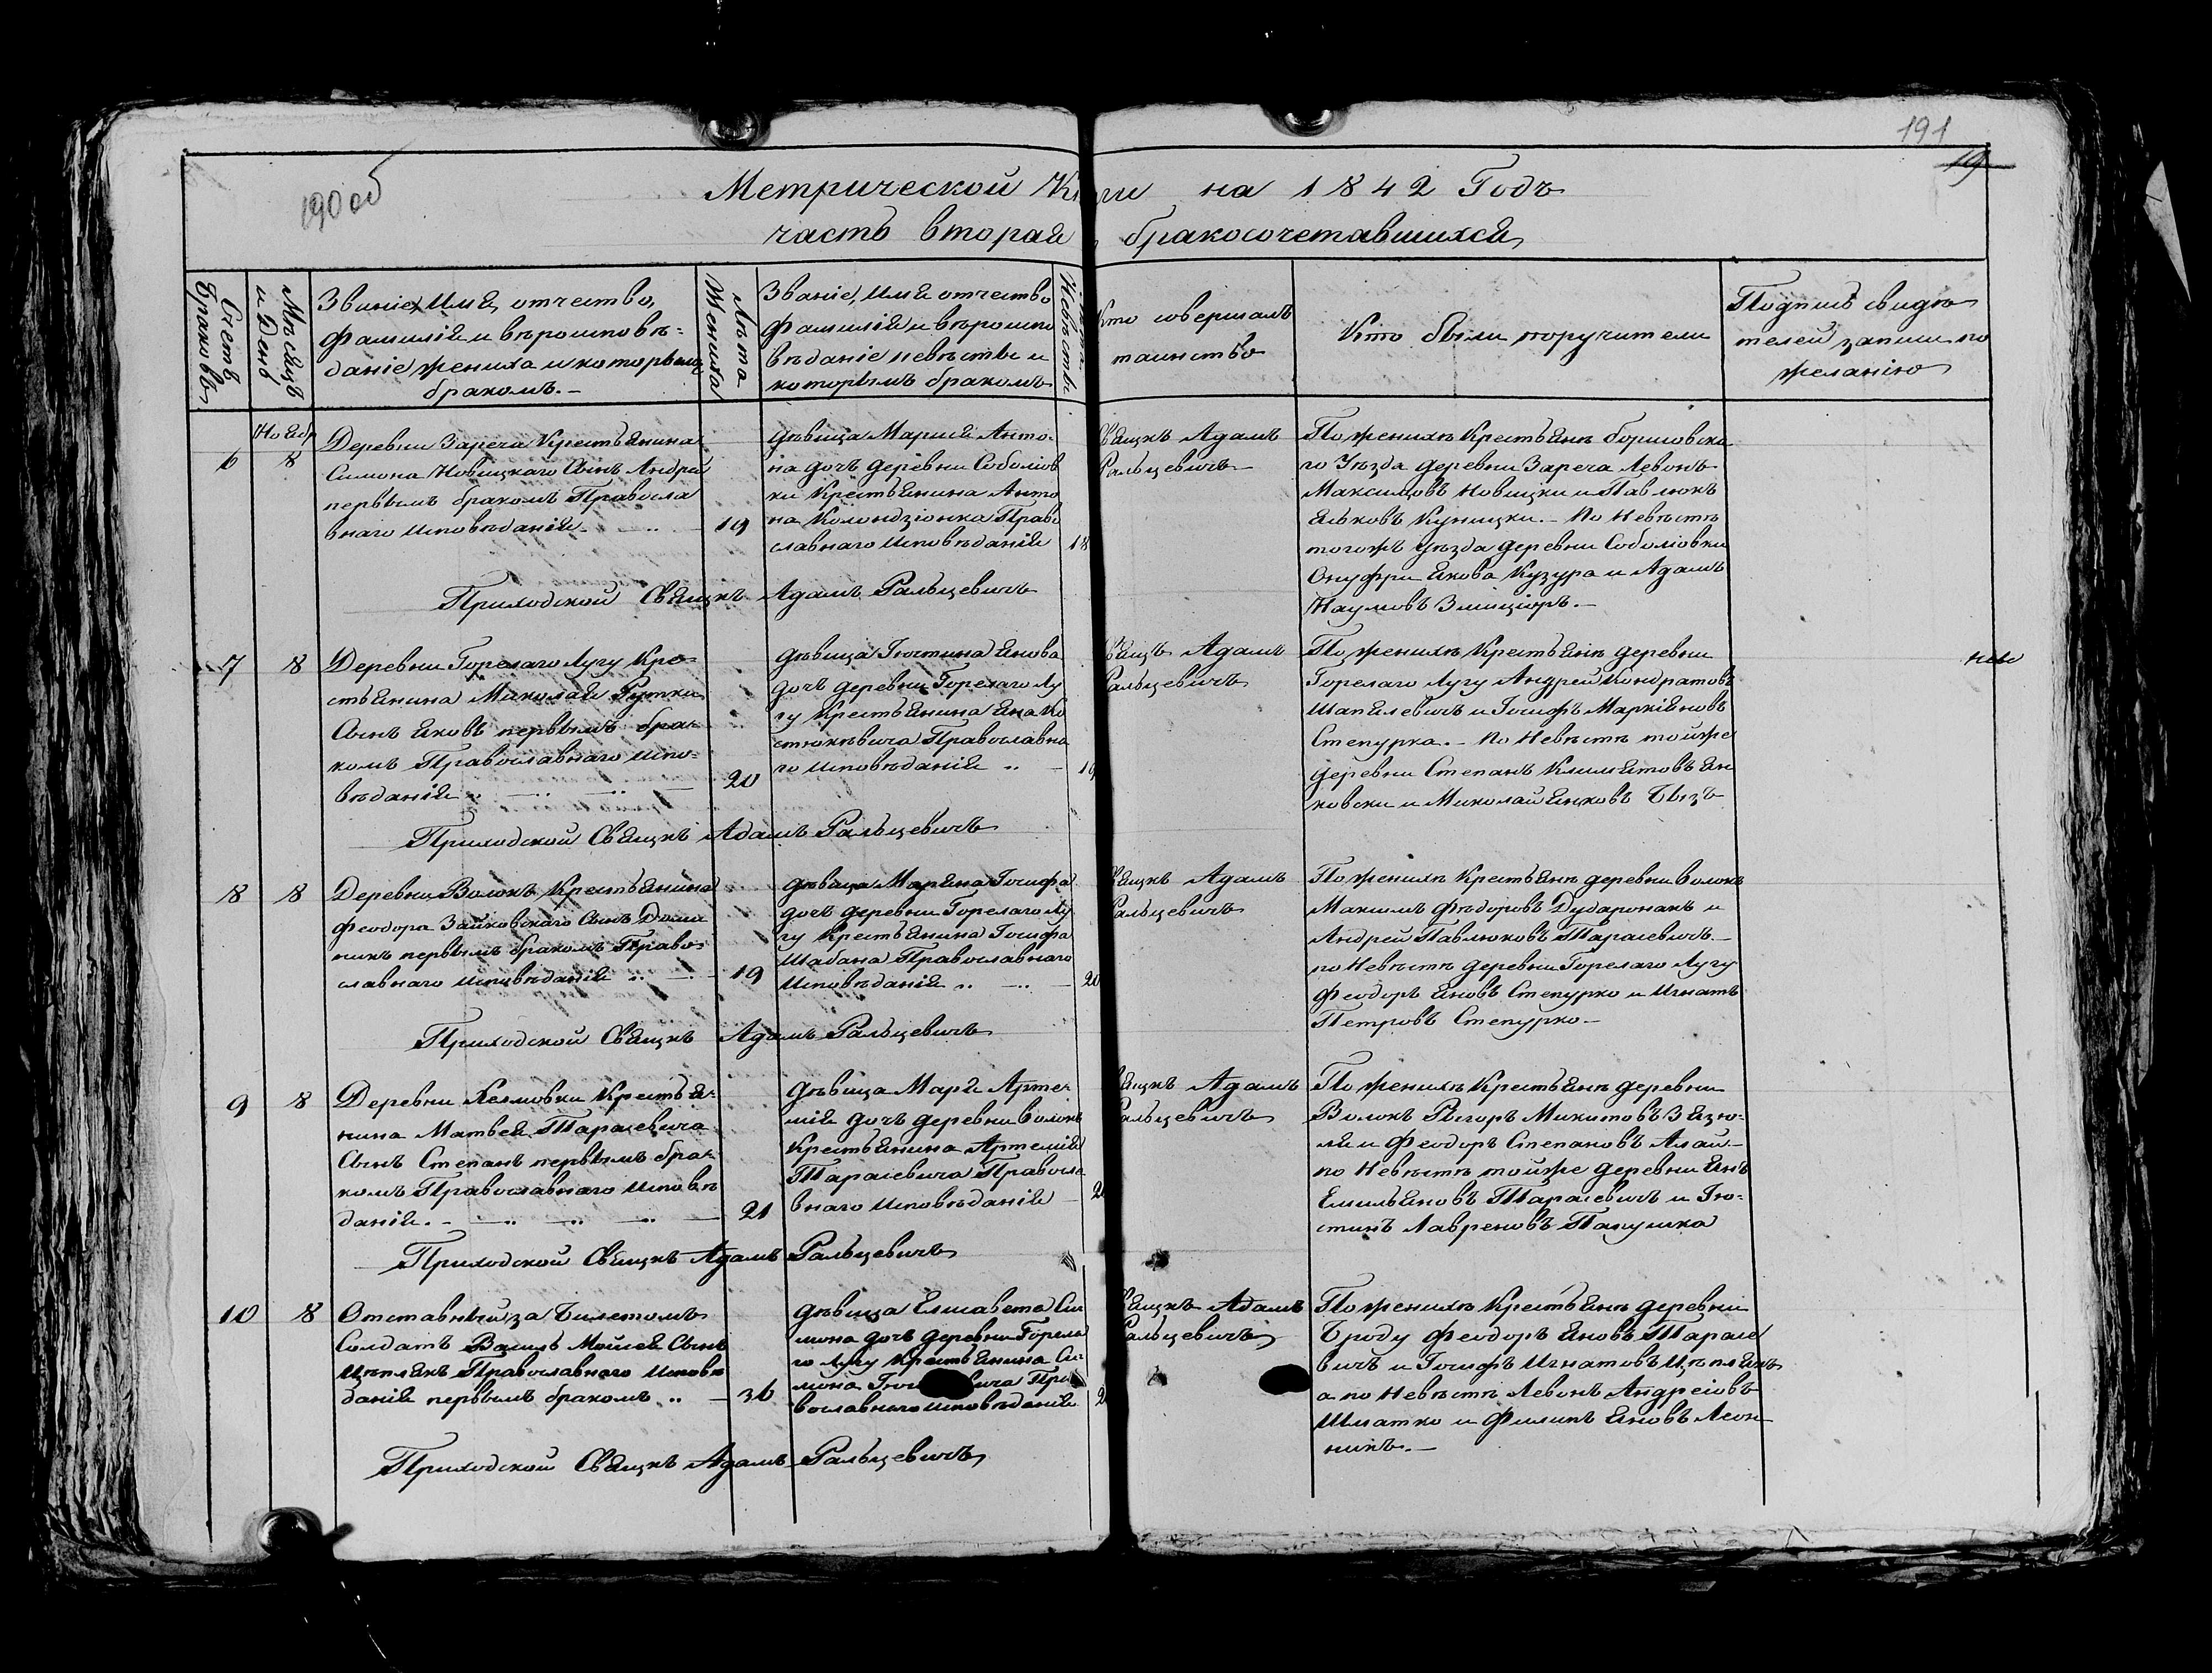 191
19
190 об
Метрической Кн ги на 1842 Годъ
часть вторая бракосочетавшихся
Счетъ браковъ
Мѣсяцъ и День
Званіе, Имя, отчество,
фамилія и вѣроисповѣ-
даніе жениха и которымъ
бракомъ.-
Лѣта Жениха
Званіе, Имя отчество
фамилія и вѣроиспо
вѣданіе невѣсты и
которымъ бракомъ
Невѣсты
Кто совершалъ
таинство
Кто были поручители
Подпись свидѣ
телей записи по
желанію
Ноябр
6
8
Деревни Зареча Крестьянина
Симона Новицкаго Сынъ Андрей
первымъ бракомъ Правосла
внаго исповѣданія
19
дѣвица Марія Анто-
на дочь деревни Соболіов
ки Крестьянина Анто
на Колондзіонка Право
славнаго исповѣданія
18
Свящнъ Адамъ
Ральцевичъ
По женихѣ Крестьянѣ борисовска
го Уѣзда деревни Зареча Левонъ
Максимовъ Новицки и Павлюкъ
Яьковъ Куницки.- По Невѣстѣ
тогожъ уѣзда деревни Соболіовки
Онуфри Якова Кузура и Адамъ
Наумовъ Зміціоръ.-
Приходской Свящнъ Адамъ Ральцевичъ
7
8
Деревни Горелаго Лугу Кре-
стьянина Миколая Рутки
Сынъ Яковъ первымъ бра-
комъ Православнаго испо-
вѣданія
20
дѣвица Іюстина Янова
дочь деревни Горелаго Лу
гу Крестьянина Яна Ко
стюкѣвича Православна
го исповѣданія
19
Свящъ Адамъ
Ральцевичъ
По женихѣ Крестьянѣ деревни
Горелаго Лугу Андрей Кондратовъ
Шапялевичъ и Іосифъ Маркіяновъ
Степурка.- По Невѣстѣ тойже
деревни Степанъ Климятовъ Ян
ковски и Миколай Янковъ Бызъ
Приходской Свящнъ Адамъ Ральцевичъ
8
8
Деревни Волокъ Крестьянина
Феодора Зайковскаго Сынъ Доми
никъ первымъ бракомъ Право-
славнаго исповѣданія
19
дѣвица Маряна Іосифа
дочь деревни Горелаго Лу
гу Крестьянина Іосифа
Шабана Православнаго
исповѣданія
20
Свящнъ Адамъ
Ральцевичъ
По женихѣ Крестьянѣ деревни Волокъ
Максимъ Фѣдоровъ Дударонакъ и
Андрей Павлюковъ Тарасевичъ.-
по Невѣстѣ деревни Горелаго Лугу
Феодоръ Яновъ Степурко и Игнатъ
Петровъ Степурко.-
Приходской Свящнъ Адамъ Ральцевичъ
9
8
Деревни Крестья-
нина Матвея Тарасевича
Сынъ Степанъ первымъ бра-
комъ Православнаго исповѣ
данія.-
21
дѣвица Маря Арте-
мія дочь деревни Волокъ
Крестьянина Артемія
Тарасевича Правосла
внаго исповѣданія
2
Свящнъ Адамъ
Ральцевичъ
По женихѣ Крестьянѣ деревни
Волокъ Рыгоръ Микитовъ Зязю-
ля и Феодоръ Степановъ Алай-
по Невѣстѣ тойже деревни Янъ
Емильяновъ Тарасевичъ и Ію-
стинъ Лавреновъ Папушка
Приходской Свящнъ Адамъ Ральцевичъ
10
8
Отставный за Билетомъ
Солдатъ Василь Мойсея Сынъ
Цѣплякъ Православнаго исповѣ
данія первымъ бракомъ
36
дѣвица Елисавета Си
мона дочь деревни Горела
го Лугу Крестьянина Си-
мона вича Пра
вославнаго исповѣданія
2
Свящнъ Адамъ
Ральцевичъ
По женихѣ Крестьянѣ деревни
Броду Феодоръ Яновъ Тарасе
вичъ и Іосифъ Игнатовъ Цѣплякъ
а по Невѣстѣ Левонъ Андреіовъ
Шматко и Филипъ Яновъ Леон
никъ.-
Приходской Свящнъ Адамъ Ральцевичъ